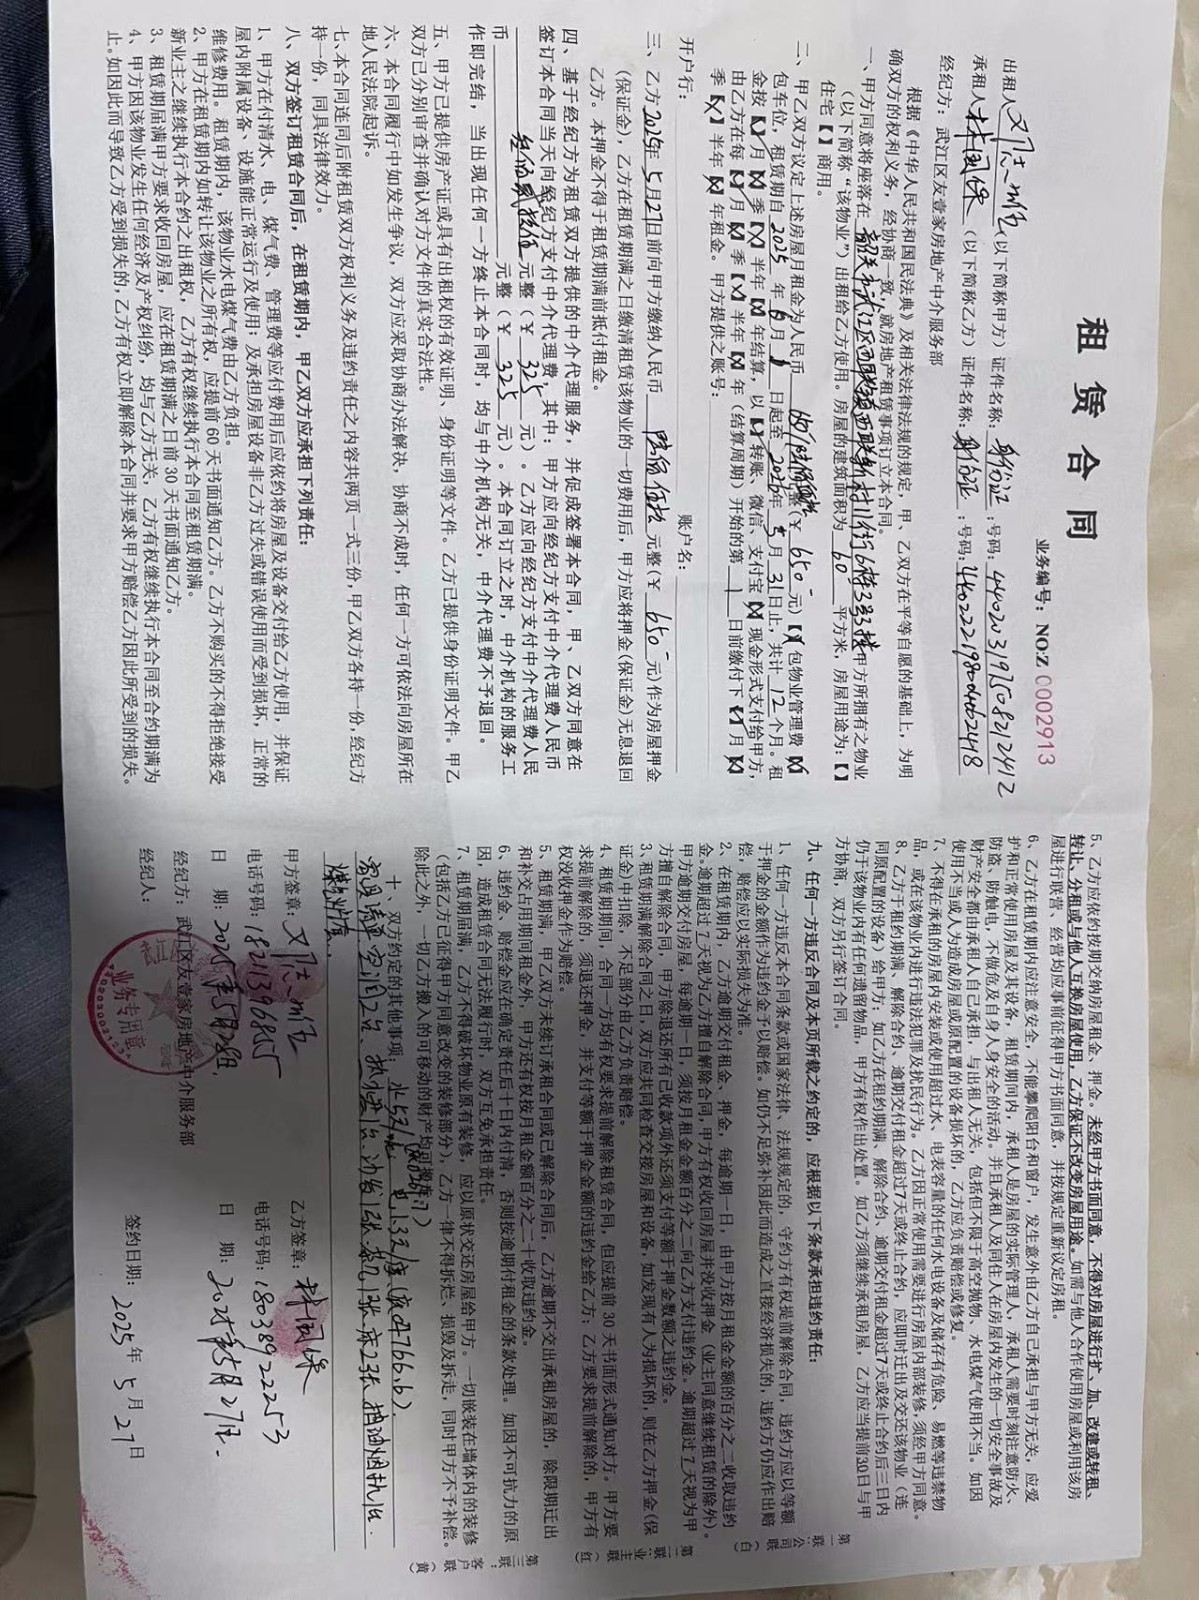 租赁合同
业务编号：NO:Z 0002913
出租人（以下简称甲方）证件名称：身份证：号码：440203197508212412
承租人（以下简称乙方）证件名称：身份证：号码：
经纪方：武江区友壹家房地产中介服务部
根据《中华人民共和国民法典》及相关法律法规的规定，甲、乙双方在平等自愿的基础上，为明
确双方的权利义务，经协商一致，就房地产租赁事项订立本合同。
一、甲方同意将座落在 韶关市武江区西联镇西联新村 甲方所拥有之物业
（以下简称“该物业”）出租给乙方使用。房屋的建筑面积为 60 平方米，房屋用途为：【】
住宅【】商用。
二、甲乙双方议定上述房屋月租金为人民币 陆佰伍拾 整（￥ 650- 元）【】包物业管理费
包车位，租赁期自 2025 年 6 月 1 日起至 2026 年 5 月 31 日止，共计 12 个月。租
金按【√】月【】季【】半年【】年结算，以【】转账、微信、支付宝【】现金形式支付给甲方，
由乙方在每【】月【】季【】半年【】年（结算周期）开始的第 1 日前缴付下【】月【】
季【】半年【】年租金。甲方提供之账号：
开户行： 账户名：
三、乙方 2025年5月27日前向甲方缴纳人民币 陆佰伍拾 元整（￥ 650- 元）作为房屋押金
（保证金），乙方在租赁期满之日缴清租赁该物业的一切费用后，甲方应将押金（保证金）无息退回
乙方。本押金不得于租赁期满前抵付租金。
四、基于经纪方为租赁双方提供的中介代理服务，并促成签署本合同，甲、乙双方同意在
签订本合同当天向经纪方支付中介代理费，其中：甲方应向经纪方支付中介代理费人民币
元整（￥ 325 元）。乙方应向经纪方支付中介代理费人民
币 元整（￥ 325 元）。本合同订立之时，中介机构的服务工
作即完结，当出现任何一方终止本合同时，均与中介机构无关，中介代理费不予退回。
五、甲方已提供房产证或具有出租权的有效证明、身份证明等文件。乙方已提供身份证明文件。甲乙
双方已分别审查并确认对方文件的真实合法性。
六、本合同履行中如发生争议，双方应采取协商办法解决，协商不成时，任何一方可依法向房屋所在
地人民法院起诉。
七、本合同连同后附租赁双方权利义务及违约责任之内容共两页一式三份，甲乙双方各持一份，经纪方
持一份，同具法律效力。
八、双方签订租赁合同后，在租赁期内，甲乙双方应承担下列责任：
1、甲方在付清水、电、煤气费、管理费等应付费用后应依约将房屋及设备交付给乙方使用，并保证
屋内附属设备、设施能正常运行及使用；及承担房屋设备非乙方过失或错误使用而受到损坏，正常的
维修费用。租赁期内，该物业水电煤气费由乙方负担。
2、甲方在租赁期内如转让该物业之所有权，应提前 60 天书面通知乙方。乙方不购买的不得拒绝接受
新业主之继续执行本合约之出租权，乙方有权继续执行本合同至租赁期满。
3、租赁期届满甲方要求收回房屋，应在租赁期满之日前 30 天书面通知乙方。
4、甲方因该物业发生任何经济及产权纠纷，均与乙方无关，乙方有权继续执行本合同至合约期满为
止。如因此而导致乙方受到损失的，乙方有权立即解除本合同并要求甲方赔偿乙方因此所受到的损失。
5、乙方应依约按期交纳房屋租金、押金。未经甲方书面同意，不得对房屋进行扩、加、改建或转租、
转让、分租或与他人互换房屋使用，乙方保证不改变房屋用途。如需与他人合作使用房屋或利用该房
屋进行联营、经营均应事前征得甲方书面同意，并按规定重新议定房租。
6、乙方在租赁期内应注意安全，不能攀爬阳台和窗户，发生意外由乙方自己承担与甲方无关，应爱
护和正常使用房屋及其设备，租赁期间内，承租人是房屋的实际管理人，承租人需要时刻注意防火、
防盗、防触电，不做危及自身人身安全的活动。并且承租人及同住人在房屋内发生的一切安全事故及
财产安全都由承租人自己承担，与出租人无关，包括但不限于高空抛物、水电煤气使用不当。如因
使用不当或人为造成房屋或原配置的设备损坏的，乙方应负责赔偿或修复。
7、不得在承租的房屋内安装或使用超过水、电表容量的任何水电设备及储存有危险、易燃等违禁物
品，或在该物业内进行违法犯罪及扰民行为。乙方因正常使用需要进行房屋内部装修，须经甲方同意。
8、乙方于租约期满，解除合约、逾期交付租金超过7天或终止合约，应即时迁出及交还该物业（连
同原配置的设备）给甲方；如乙方在租约期满，解除合约、逾期交付租金超过7天或终止合约后三日内
仍于该物业内有任何遗留物品，甲方有权作出处置。如乙方须继续承租房屋，乙方应当提前30日与甲
方协商，双方另行签订合同。
九、任何一方违反合同及本页所载之约定的，应根据以下条款承担违约责任：
1、任何一方违反本合同条款或国家法律、法规规定的，守约方有权提前解除合同，违约方应以等额
于押金的金额作为违约金予以赔偿。如仍不足弥补因此而造成之直接经济损失的，违约方仍应作出赔
偿，赔偿应以实际损失为准。
2、在租赁期内，乙方逾期交付租金、押金，每逾期一日，由甲方按月租金金额的百分之二收取违约
金。逾期超过 7 天视为乙方擅自解除合同，甲方有权收回房屋并没收押金（业主同意继续租赁的除外）。
甲方逾期交付房屋，每逾期一日，须按月租金金额百分之二向乙方支付违约金。逾期超过 7 天视为甲
方擅自解除合同，甲方除退还所有已收款项外还须支付等额于押金数额之违约金。
3、租赁期满解除合同之日，双方应共同检查交接房屋和设备，如发现有人为损坏的，则在乙方押金（保
证金）中扣除，不足部分由乙方负责赔偿。
4、租赁期期间，合同一方均有权要求提前解除租赁合同，但应提前 30 天书面形式通知对方。甲方要
求提前解除的，须退还押金，并支付等额于押金金额的违约金给乙方；乙方要求提前解除的，甲方有
权没收押金作为赔偿。
5、租赁期满，甲乙双方未续订承租合同或已解除合同后，乙方逾期不交出承租房屋的，除限期迁出
和补交占用期间租金外，甲方还有权按月租金额百分之二十收取违约金。
6、违约金、赔偿金应在确定责任后十日内付清，否则按逾期付租金的条款处理。如因不可抗力的原
因，造成租赁合同无法履行时，双方互免承担责任。
7、租赁期届满，乙方不得破坏物业原有装修，应以原状交还房屋给甲方。一切嵌装在墙体内的装修
（包括乙方已征得甲方同意改变的装修部分），乙方一律不得拆烂、损毁及拆走，同时甲方不予补偿。
除此之外，一切乙方搬入的可移动的财产均可搬走。
十、双方约定的其他事项：
甲方签章： 乙方签章：
电话号码：18213968155 电话号码：18038922253
日 期：2025年5月27日. 日 期：2025年5月27日.
经纪方：武江区友壹家房地产中介服务部
经纪人： 签约日期：2025年5月27日
业务专用章
第一联：公司联（白）
第二联：业主联（红）
第三联：客户联（黄）